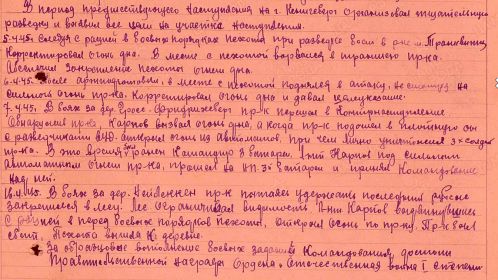 В период предшествующего наступления на г. Кенигсберг организовал тщательную
разведку и выявил все цели на участке наступления.
5.4.45. Следуя с рацией в боевых порядках пехоты при разведке боем в р-не м. Транквитц
Корректировал огонь д-на. В месте с пехотой ворвался в траншеи пр-ка.
закрепление пехоты огнем д-на.
6.4.45 После артподготовки, в месте с пехотой поднялся в атаку, не смотря на
сильный огонь пр-ка. Корректировал огонь д-на и давал целеуказание.
7.4.45. В боях за дер. Гросс Фридрихсберг пр-к перешел в контрнаступление
Обнаружив пр-ка, Карпов вызвал огонь д-на, а когда пр-к подошел в плотную он
с разведчиками открыл огонь из автоматов, при чем лично уничтожил 3х солдат
пр-ка. В это время ранен Командир 3 батареи. Л-нт Карпов под сильным
автоматным огнем пр-ка, прошел на НП. 3й батареи и принял командование
над ней.
16.4.45. В боях за дер. пр-к пытался удержать последний рубеж
закрепившись в лесу. Лес ограничивал видимость Л-нт Карпов выдвинувшись
с рацией в перед боевых порядков пехоты, открыл огонь по пр-ку. Пр-к был
сбит. Пехота заняла дер.
За образцовые выполнение боевых заданий командования, достоин
Правительственной награды Ордена "Отечественная война I степени"